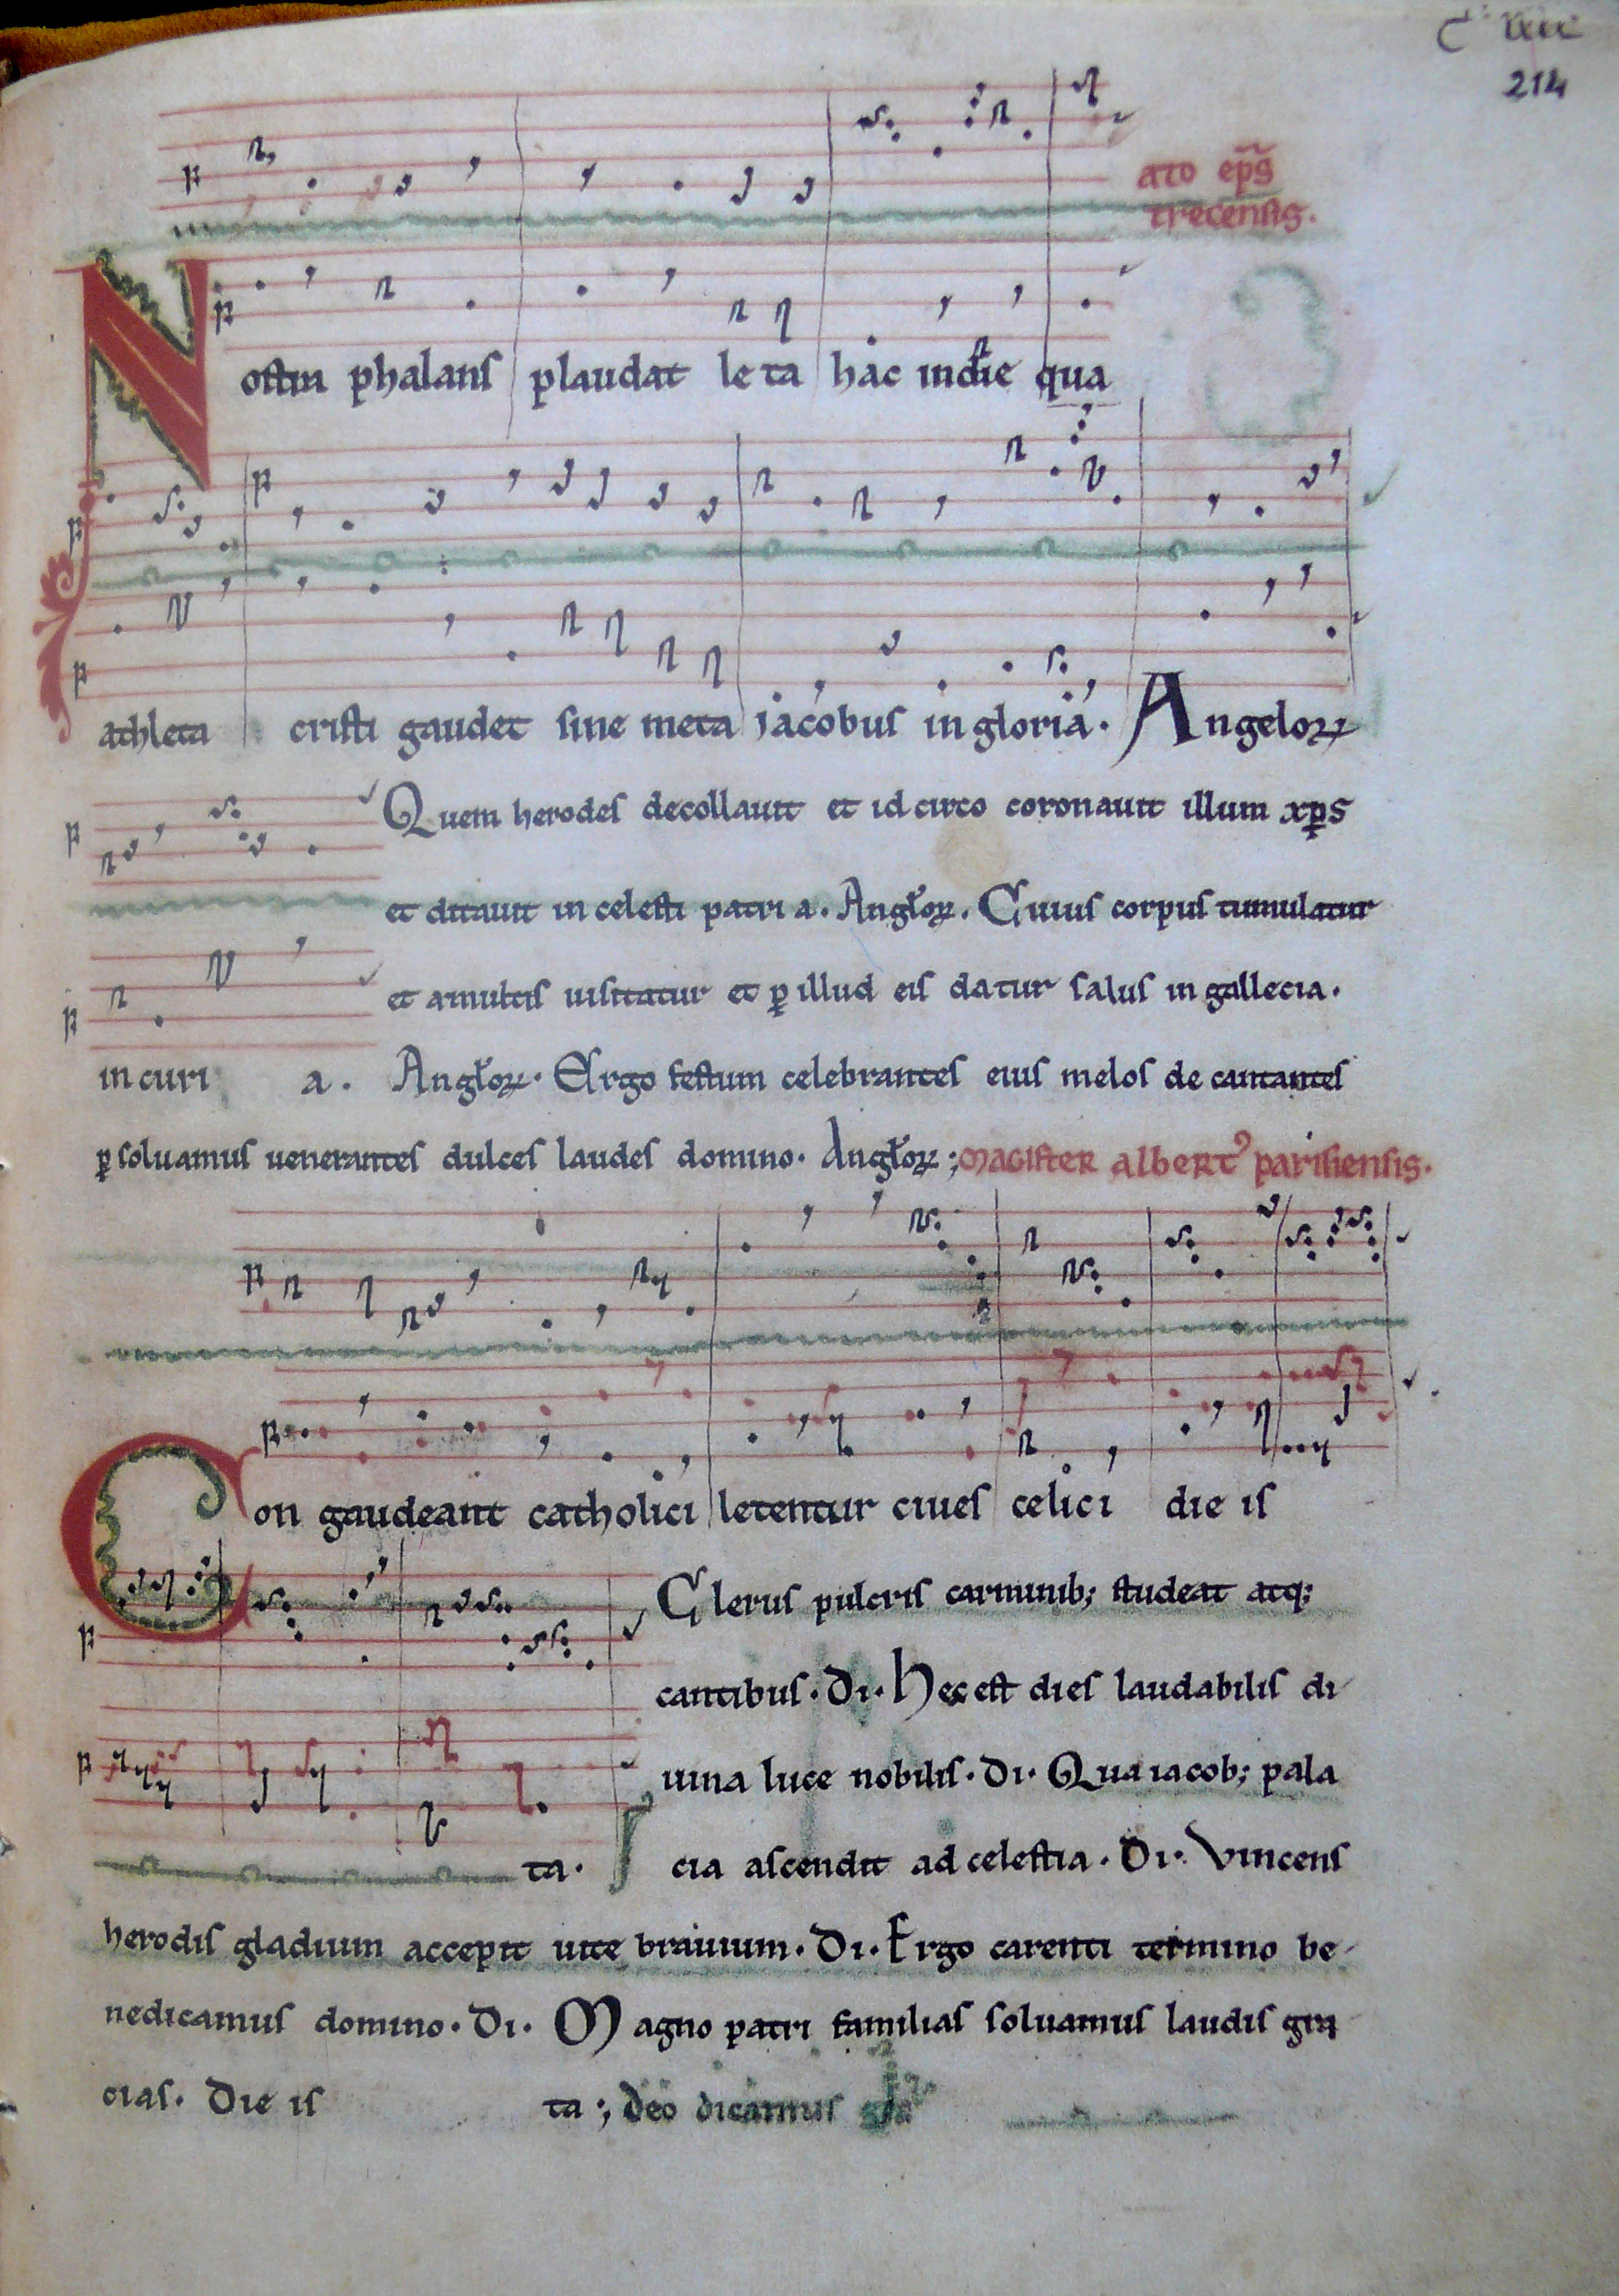 214
ato ep̄s
trecensis.
Nostra phalans plaudat leta hac in die qua
athleta cristi gaudet sine meta iacobus in gloria. Angeloꝝ
Quem herodes decollauit et id circo coronauit illum xp̄s
et ditauit in celesti patri a. Angl̓oꝝ. Cuius corpus tumulatur
et a multis uisitatur et ꝑ illud eis datur salus in gallecia.
in curi a. Angl̓oꝝ. Ergo festum celebrantes eius melos de cantantes
ꝑsoluamus uenerantes dulces laudes domino. Angl̓oꝝ; magister albertꝰ parisiensis.
Con gaudeant catholici letentur ciues celici die is
Clerus pulcris carminib; studeat atq;
cantibus. Di. Hec est dies laudabilis di
uina luce nobilis. Di. Qua iacob; pala
ta. cia ascendit ad celestia. Di. Vincens
herodis gladium accepit uite brauium. Di. Ergo carenti termino be
nedicamus domino. Di. Magno patri familias soluamus laudis gra
cias. Die is ta; deo dicamus